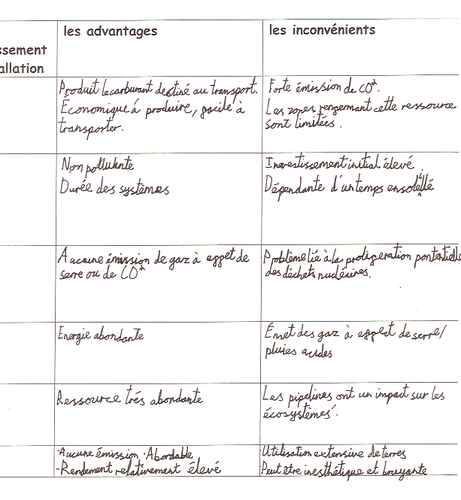 les advantages
les inconvénients
ssement
allation
Produit le carburant destiné au transport.
Économique à produire, facile à
transporter.
Forte émission de CO².
Les zones renfermant cette ressource
sont limitées.
Non polluante
Durée des systèmes
Investissement initial élevé
Dépendante d'un temps ensoleillé
Aucune émission de gaz à effet de
serre ou de CO²
Problème lié à la proligeration pontentielle
des déchets nucléaires.
Energie abondante
Émet des gaz à effect de serre/
pluies acides
Ressource très abondante
Les pipelines ont un impact sur les
écosystèmes.
·Aucune émission ·Abordable
-Rendement relativement élevé
·Utilisation extensive de terres
Peut être inesthétique et bruyante